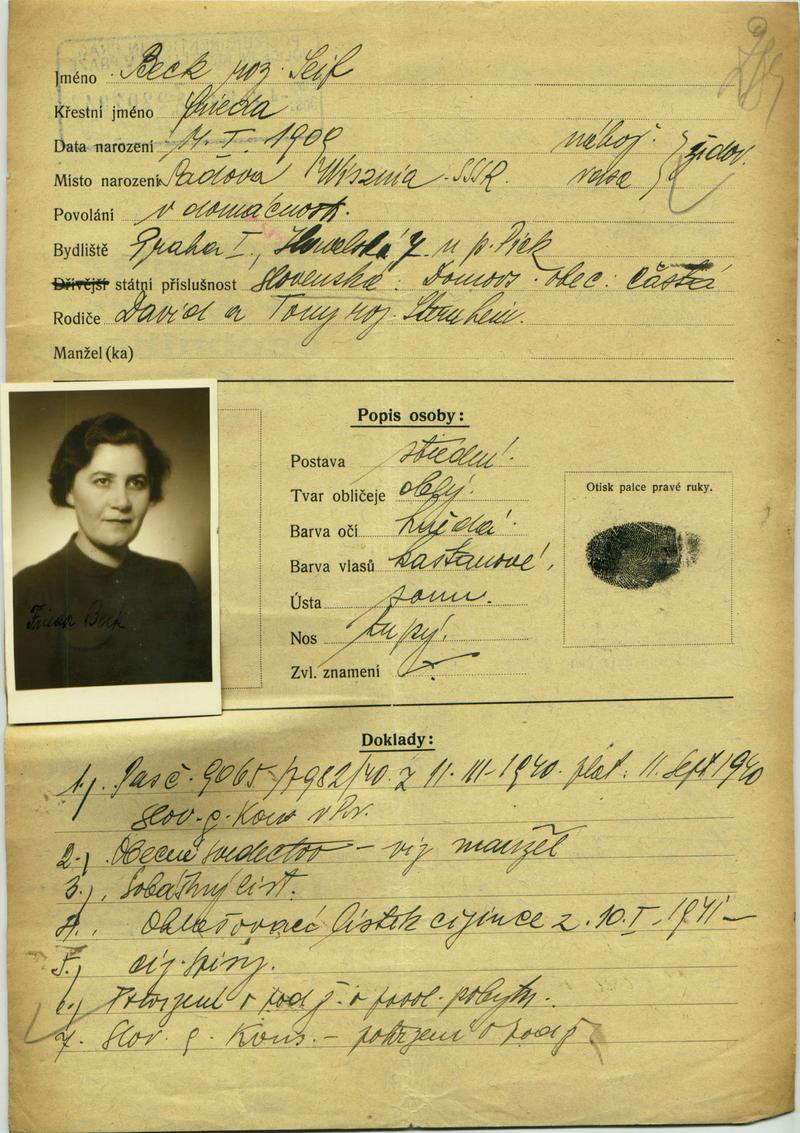 Jméno Beck roz. Seif
Křestní jméno Frieda
Data narození I. 1909 nábož.
Místo narození SSSR. židov.
Povolání v domácnosti.
Bydliště Praha I., 7. u p. Pick
Dřívější státní příslušnost Slovenská. Domovs. obec: Častá
Rodiče David a Tony roz.
Manžel (ka)
Popis osoby:
Postava střední.
Tvar obličeje oblý.
Otisk palce pravé ruky.
Barva očí hnědá.
Barva vlasů kaštanové,
Ústa
Nos tupý.
Zvl. znamení
Frieda Beck
Doklady:
1.) Pas č. 9065/7982/40. z 11. III-1940. plat. 11. Sept 1940
Slov. g. Kons v Pr.
2.) Obecné svedectvo - viz manžel
3.) Sobášný list.
4. Ohlašovací lístek cizince z 10. I. 1941 -
5.) ciz.
6.) Potvrzení o pod ž. o povol. pobytu.
7. Slov. g. Kons. - potvrzení o pod ž.